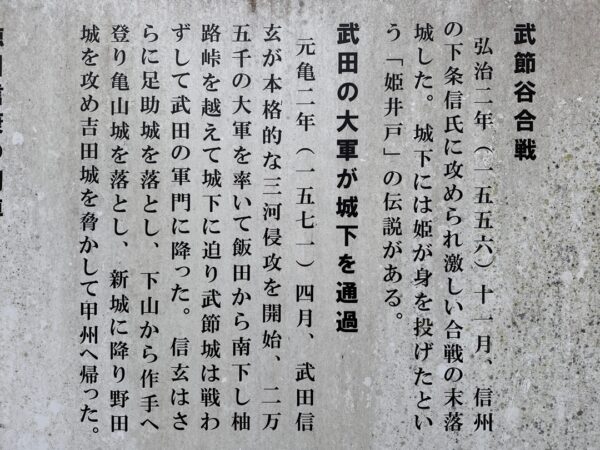 武節谷合戦
弘治二年（一五五六）十一月、信州
の下条信氏に攻められ激しい合戦の末落
城した。城下には姫が身を投げたとい
う「姫井戸」の伝説がある。
武田の大軍が城下を通過
元亀二年（一五七一）四月、武田信
玄が本格的な三河侵攻を開始、二万
五千の大軍を率いて飯田から南下し柚
路峠を越えて城下に迫り武節城は戦わ
ずして武田の軍門に降った。信玄はさ
らに足助城を落とし、下山から作手へ
登り亀山城を落とし、新城に降り野田
城を攻め吉田城を脅かして甲州へ帰った。